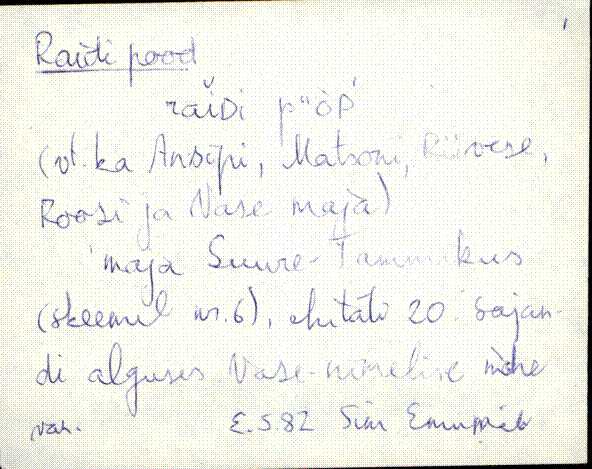 Raiti pood
raĭDi p" òD́
(vt. ka Ansipi, Matsoni, Riivese,
Roosi ja Vase maja)
maja Suure-Tammikus
(skeemil nr. 6), ehitati 20. sajan-
di alguses Vase-nimelise mehe
E.S.82 Siiri